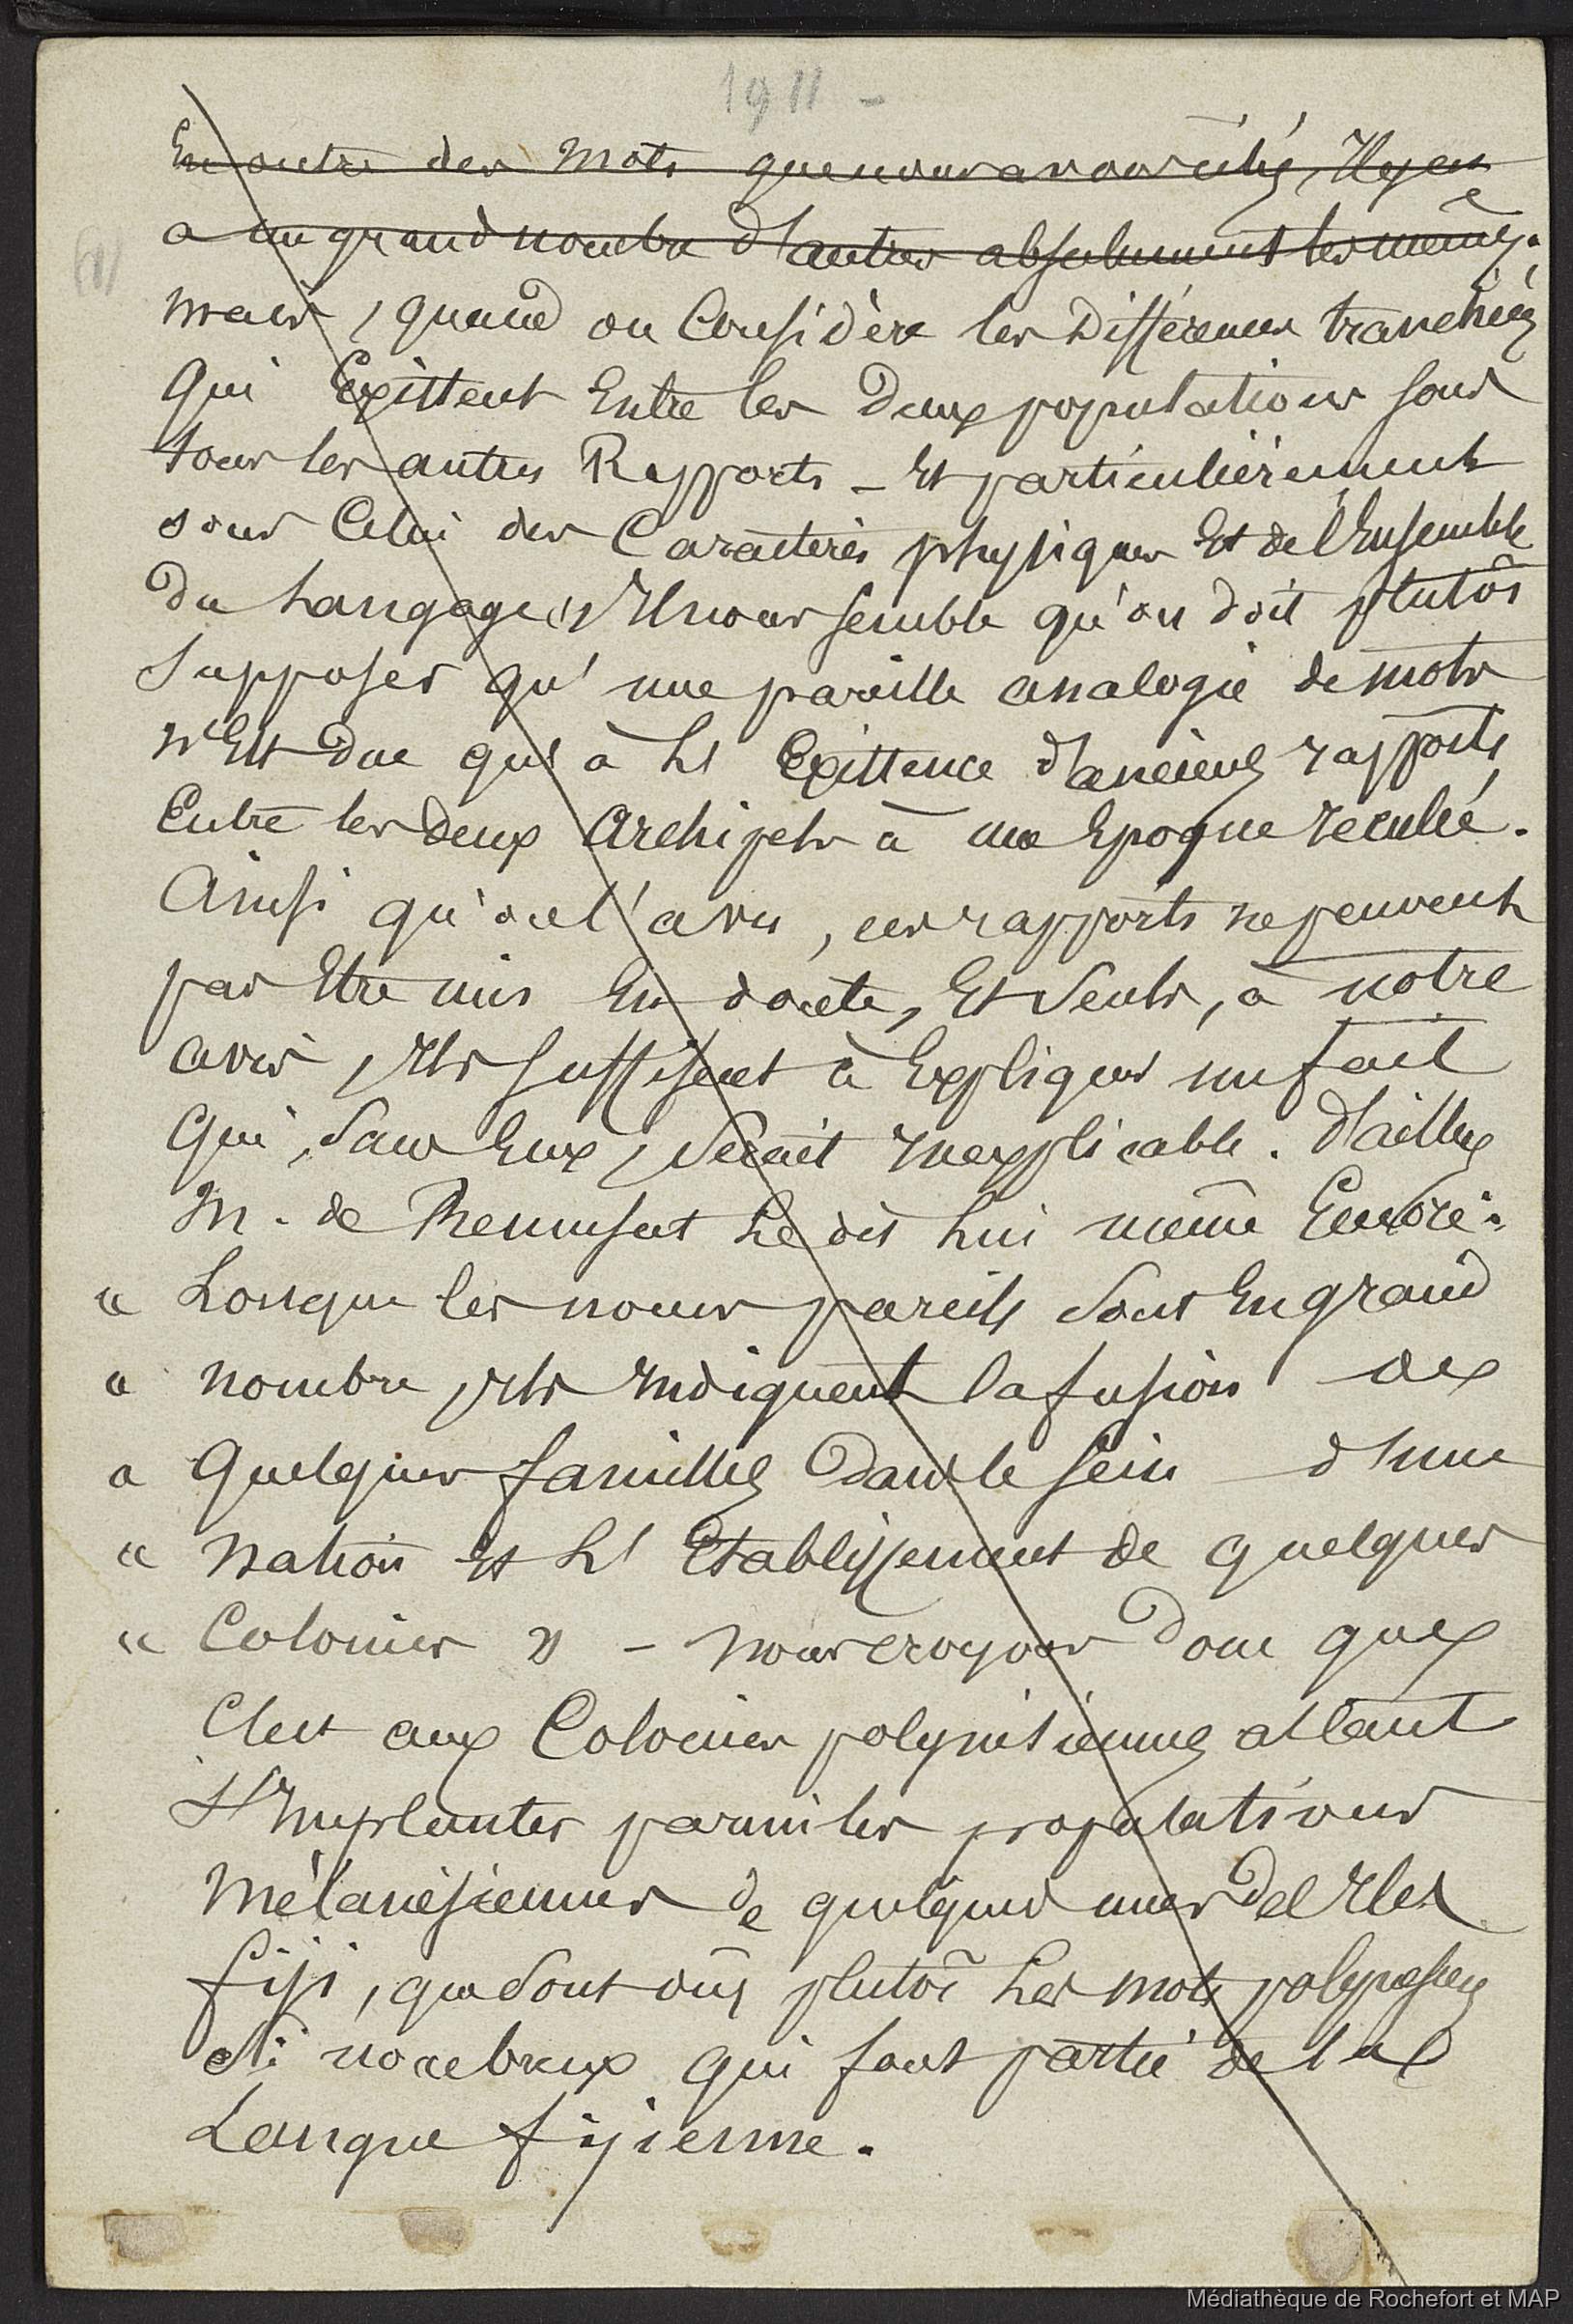 1911 -
En outre des mots que nous avons cités, Il y en
a un grand nombre d'autres absolument les mêmes.
(1)
mais, quand on Considère les Différences tranchées
Qui Existent Entre les Deux populations sous
tous les autres Rapports - Et particulièrement
sous Celui des Caractères physiques Et de l'Ensemble
Du Langage (1) Il nous semble qu'on doit plutôt
Supposer qu'une pareille analogie de mots
n'Est Due qu'à L'Existence d'anciens rapports
Entre les deux Archipels à une Epoque reculée.
Ainsi qu'on l'a vu, ces rapports ne peuvent
pas Etre mis En doute, Et Seuls, à notre
avis, Ils suffisent à Expliquer un fait
Qui, Sans Eux, Serait Inexplicable. D'ailleurs
M. de Remusat Le dit Lui même Encore :
« Lorsque les noms pareils Sont En grand
« nombre, Ils Indiquent la fusion de
« Quelques familles Dans le sein d'une
« Nation Et L'Etablissement de quelques
« Colonies » - Nous croyons Donc que
C'est aux Colonies polynésiennes allant
S'Implanter parmi les populations
Mélanésiennes de quelques unes des Iles
fiji, que Sont dûs plutôt Les mots polynésiens
Si nombreux Qui font partie de la
Langue fijienne.
Médiathèque de Rochefort et MAP